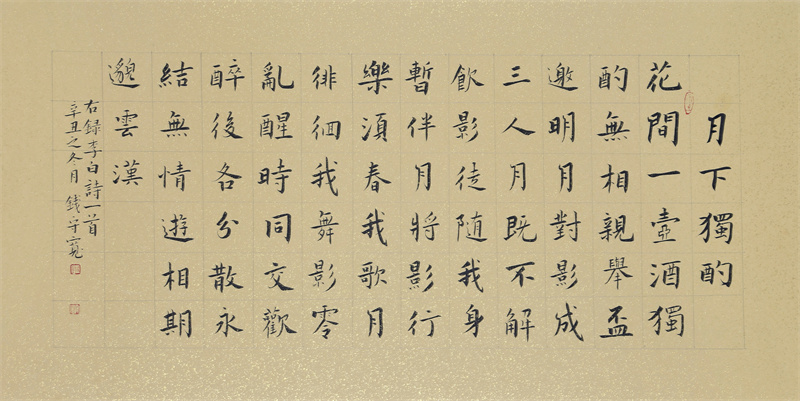 月下獨酌
花間一壺酒獨
酌無相親舉盃
邀明月對影成
三人月既不解
飲影徒随我身
暫伴月將影行
樂湏春我歌月
徘徊我舞影零
亂醒時同交歡
醉後各分散永
結無情遊相期
邈雲漢
右録李白詩一首
辛丑之冬月 錢守寬